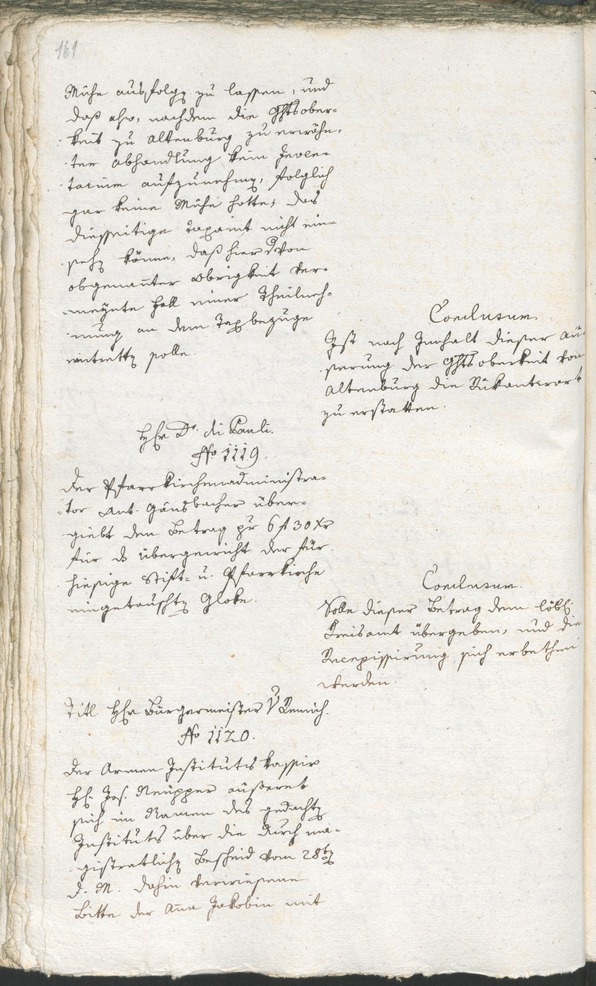 161
Mühe ausfolgen zu lassen, und
daß also, nachdem die Ghtsober-
keit zu Altenburg zu erwähn-
ter Abhandlung kein Inven-
tarium aufzunehmen, folglich
gar keine Mühe hatte; das
diesseitige Taxamt nicht ein-
sehen könne, daß hier der von
obgenannter Obrigkeit ver-
meynte Fall einer Theilneh-
mung an dem Taxbezuge
eintretten solle.
Conclusum.
Ist nach Innhalt dieser Aü-
sserung der Ghts oberkeit von
Altenburg die Rükantwort
zu erstatten.
Hr Dr. di Pauli.
No 1119.
Der Pfarrkirchenadministra-
tor Ant. Gänsbacher über-
giebt den Betrag pr 6 f 30 Xr
für das übergewicht der für
hiesige Stift- u. Pfarrkirche
eingetauschten Gloke.
Conclusum.
Solle dieser Betrag dem löbl.
Kreisamt übergeben, und die
Recepissirung sich erbethen
werden.
Titl Hr Bürgermeister v
No 1120.
Der Armen Instituts kassier
Hr Jos. äußeret
sich im Namen des gedachten
Instituts über die durch ma-
gistratlichen Bescheid vom 28ten
d. M. dahin verwiesene
Bitte der Anna Jakobin mit